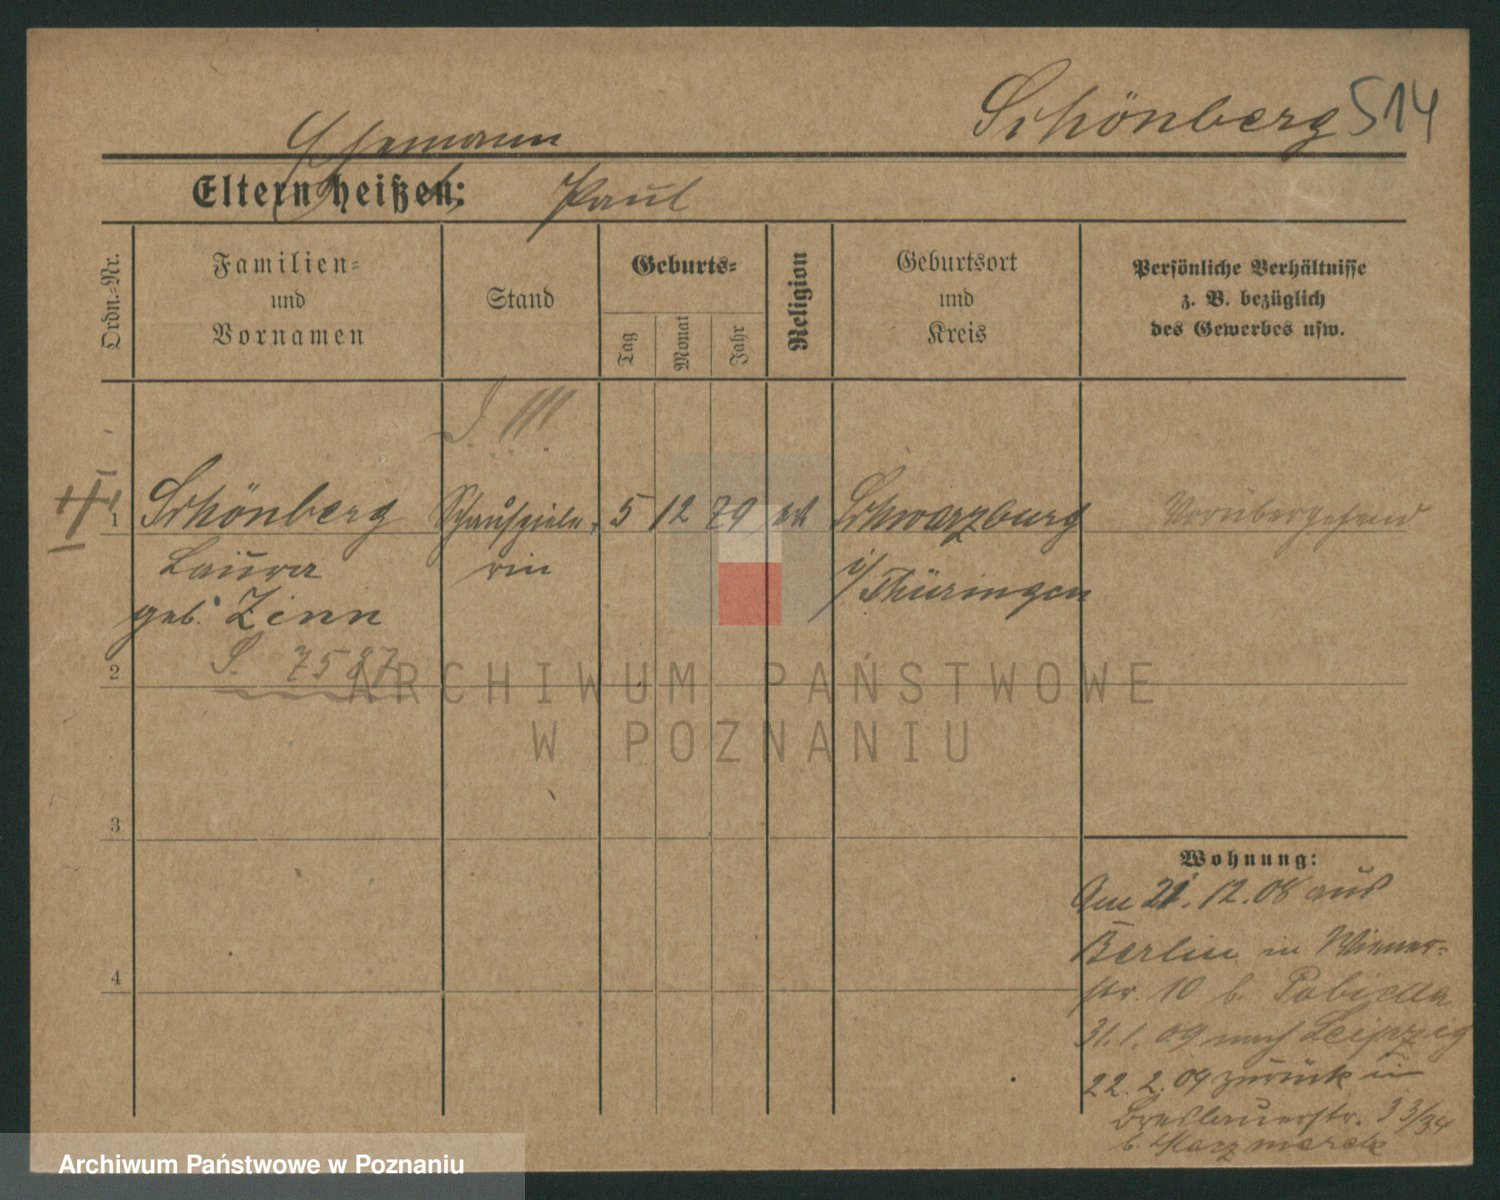 Schönberg 514
Ehemann
Eltern heißen: Paul
Ordn.-Nr.
Familien-
und
Vornamen
Stand
Geburts-
Tag
Monat
Jahr
Religion
Geburtsort
und
Kreis
Persönliche Verhältnisse
z. B. bezüglich
des Gewerbes usw.
J. III
1 Schönberg Schauspiele- 5 12 79 Schwarzburg Vorübergehend
Laura rin i/Thüringen
geb. Zinn
S. 7587
2
3
4
Wohnung:
Am 21. 12. 08 aus
Berlin in Wiener-
str. 10 b.
31. 1. 09 nach Leipzig
22. 2. 09 zurück in
Breslauerstr. 33/34
b. Kaczmarek
ARCHIWUM PAŃSTWOWE
W POZNANIU
Archiwum Państwowe w Poznaniu